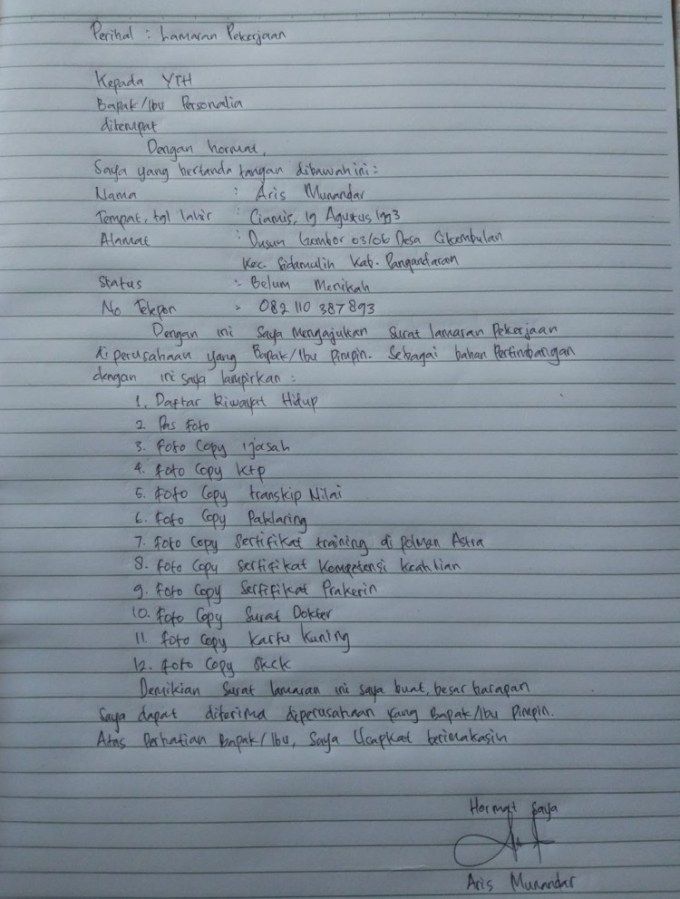 Perihal : Lamaran Pekerjaan
Kepada YTH
Bapak/Ibu Personalia
ditempat
Dengan hormat,
Saya yang bertanda tangan dibawah ini :
Nama : Aris Munandar
Tempat, tgl lahir : Ciamis, 19 Agustus 1993
Alamat : Dusun Gembor 03/06 Desa Cikembulan
Kec. Sidamulih Kab. Pangandaran
Status : Belum Menikah
No Telepon : 082 110 387 893
Dengan ini Saya Mengajukan Surat lamaran Pekerjaan
diperusahaan yang Bapak/Ibu Pimpin. Sebagai bahan Pertimbangan
dengan ini saya lampirkan :
1. Daftar Riwayat Hidup
2. Pas Foto
3. Foto Copy ijasah
4. Foto Copy Ktp
5. Foto Copy transkip Nilai
6. Foto Copy Paklaring
7. Foto Copy Sertifikat training di Polman Astra
8. Foto Copy Sertifikat Kompetensi Keahlian
9. Foto Copy Sertifikat Prakerin
10. Foto Copy Surat Dokter
11. Foto Copy Kartu Kuning
12. Foto Copy Skck
Demikian Surat lamaran ini saya buat, besar harapan
Saya dapat diterima diperusahaan yang Bapak/Ibu Pimpin.
Atas Perhatian Bapak/Ibu, Saya Ucapkat terimakasih
Hormat Saya
Aris Munandar